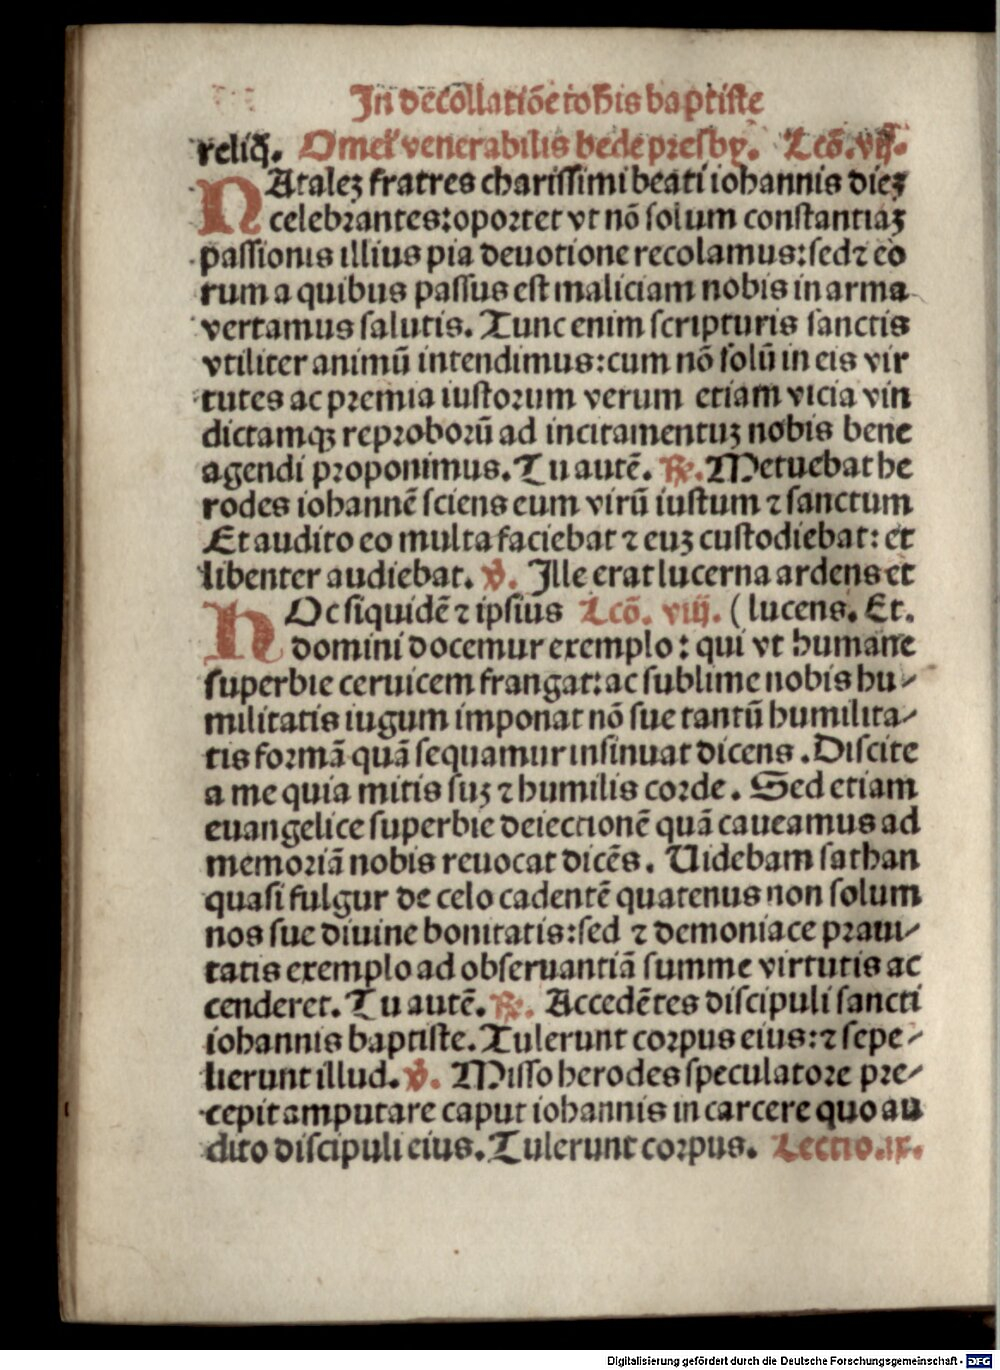 In decollatiõe ioħis baptiste
reliq̃. Omel' venerabilis bede presby. Lcõ. vij.
NAtalez fratres charissimi beati iohannis diez
celebrantes: oportet vt nõ solum constantiaz
passionis illius pia deuotione recolamus: sed ⁊ eo
rum a quibus passus est maliciam nobis in arma
vertamus salutis. Tunc enim scripturis sanctis
vtiliter animũ intendimus: cum nõ solũ in eis vir
tutes ac premia iustorum verum etiam vicia vin
dictamqꝫ reproborũ ad incitamentuz nobis bene
agendi proponimus. Tu autẽ. ℞. Metuebat he
rodes iohannẽ sciens eum virũ iustum ⁊ sanctum
Et audito eo multa faciebat ⁊ euz custodiebat: et
libenter audiebat. ℣. Ille erat lucerna ardens et
HOc siquidẽ ⁊ ipsius Lcõ. viij. ( lucens. Et.
domini docemur exemplo: qui vt humane
superbie ceruicem frangat: ac sublime nobis hu-
militatis iugum imponat nõ sue tantũ humilita-
tis formã quã sequamur insinuat dicens. Discite
a me quia mitis suz ⁊ humilis corde. Sed etiam
euangelice superbie deiectionẽ quã caueamus ad
memoriã nobis reuocat dicẽs. Uidebam sathan
quasi fulgur de celo cadentẽ quatenus non solum
nos sue diuine bonitatis: sed ⁊ demoniace praui-
tatis exemplo ad obseruantiã summe virtutis ac
cenderet. Tu autẽ. ℞. Accedẽtes discipuli sancti
iohannis baptiste. Tulerunt corpus eius: ⁊ sepe-
lierunt illud. ℣. Misso herodes speculatore pre-
cepit amputare caput iohannis in carcere quo au
dito discipuli eius. Tulerunt corpus. Lectio. ix.
Digitalisierung gefördert durch die Deutsche Forschungsgemeinschaft - DFG